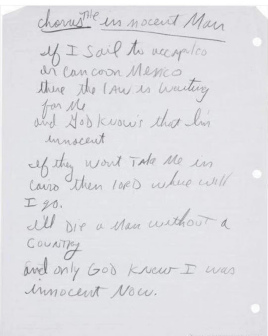 chorus The innocent Man
if I Sail to accapulco
or cancoon Mexico
there the LAW is Waiting
for Me
and God Know's that I'm
innocent
if they wont Take Me in
Cairo then lord where will
I go.
I'll Die a Man without a
Country
and only GOD Knew I was
innocent Now.